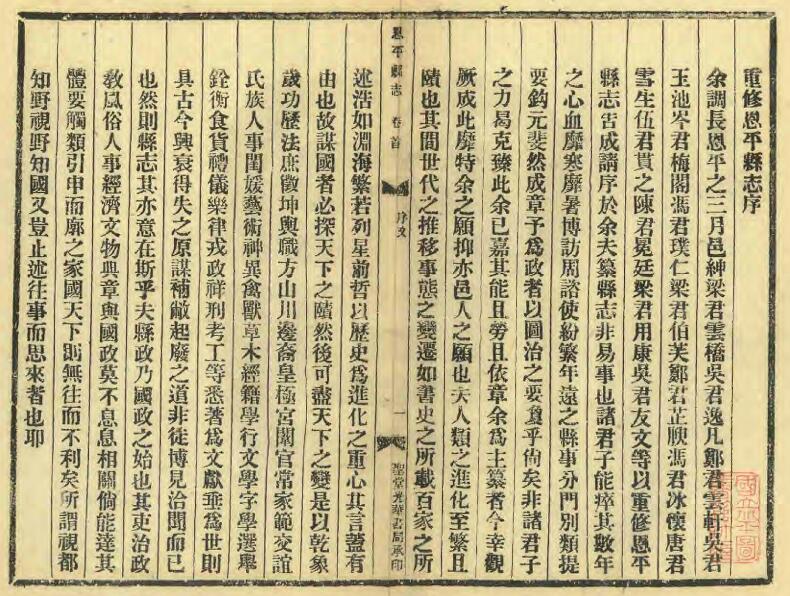 重修恩平縣志序
余調長恩平之三月邑紳梁君雲橋吳君逸凡鄭君雲軒吳君
玉池岑君梅閣馮君璞仁梁君伯芙鄭君芷腴馮君冰懷唐君
雪生伍君貫之陳君冕廷梁君用康吳君友文等以重修恩平
縣志告成請序於余夫纂縣志非易事也諸君子能瘁其數年
之心血靡寒靡暑博訪周諮使紛繁年遠之縣事分門別類提
要鈎元斐然成章予為政者以圖治之要敻乎尚矣非諸君子
之力曷克臻此余已嘉其能且勞且依章余為主纂者今幸觀
厥成此靡特余之願抑亦邑人之願也夫人類之進化至繁且
賾也其間世代之推移事態之變遷如書史之所載百家之所
恩平縣志 卷首 序文 一 聖堂光華書局承印
述浩如淵海繁若列星前哲以歷史為進化之重心其言蓋有
由也故謀國者必探天下之賾然後可盡天下之變是以乾象
歲功歷法庶徵坤輿職方山川邊裔皇極宮闈官常家範交誼
氏族人事閨媛藝術神異禽獸草木經籍學行文學字學選舉
銓衡食貨禮儀樂律戎政祥刑考工等悉著為文獻垂為世則
具古今興衰得失之原謀補敝起廢之道非徒博見洽聞而已
也然則縣志其亦意在斯乎夫縣政乃國政之始也其吏治政
教風俗人事經濟文物典章與國政莫不息息相關倘能達其
體要觸類引申而廓之家國天下則無往而不利矣所謂視都
知野視野知國又豈止述往事而思來者也耶